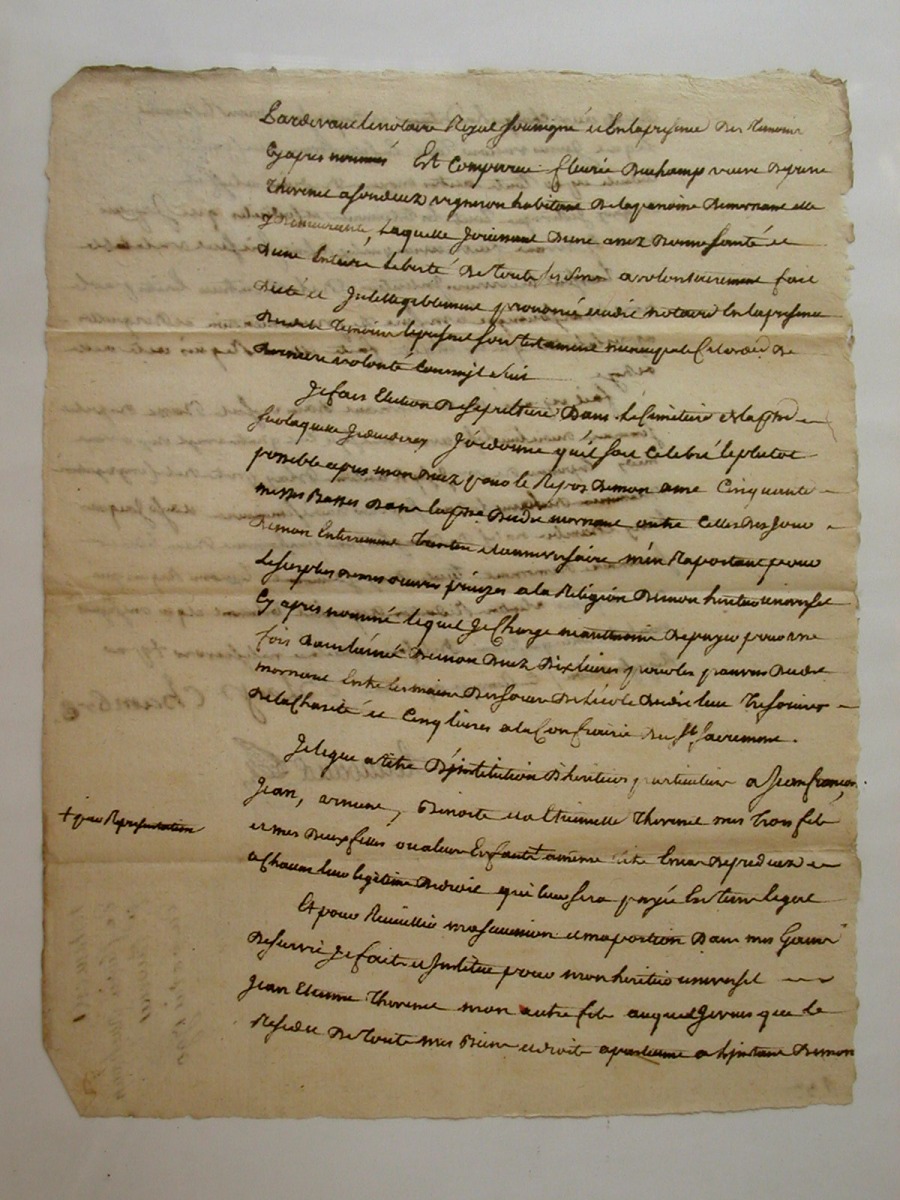 Pardevant le notaire Royal soussigné et En la presence Des temoins
Cy apres nommés Est Comparrue fleurie Duchamp veuve De pierre
Thevenet vigneron habitant De la paroisse De mornant elle
y Demeurante, Laquelle Jouissant D'une assez Bonne santé et
D'une Entiere liberté De Toute ses sens a volontairement fait
Dicté et Intelligiblement prononcé audit notaire En la presence
Desdits temoins le present son testament nuncupatif et ordre De
Derniere volonté Comme s'en suit
Je fais Election De sepulture Dans le Cimetiere De la psse
sur laquelle Je decederay J'ordonne qu'il soit Celebré le plutot
possible apres mon Decez pour le Repos De mon ame Cinquante
messes Basses Dans la psse Dudit mornant outre Celles Des jour
De mon Enterrement et anniversaire m'en Raportant pour
le surplus De mes œuvres pieuzes a la Religion De mon heritier universel
Cy apres nommé lequel Je Charge neantmoins De payer pour une
fois Dans l'année De mon Decez Dix livres pour les pauvres Dudit
mornant Entre les mains Des sœurs De l'école Dudit lieu Tresorieres
De la Charité et Cinq livres a la Confrairie du St Sacrement.
Je legue a titre D'institution D'heritiers particuliers a Jean francois,
Jean, Benoite et Thevenet mes Trois fils
et mes Deux filles ou a leur Enfants + a meme titre En cas De predecez
a Chacun leur legitime De droit qui leur sera payée En termes legaux
+ par Representation
Et pour Recueillir ma succession et ma portion Dans mes Gains
De survie Je fait et Institue pour mon heritier universel
Jean Etienne Thevenet mon autre fils auquel Je veux que le
Residu De Toute mes Biens et droits De mon